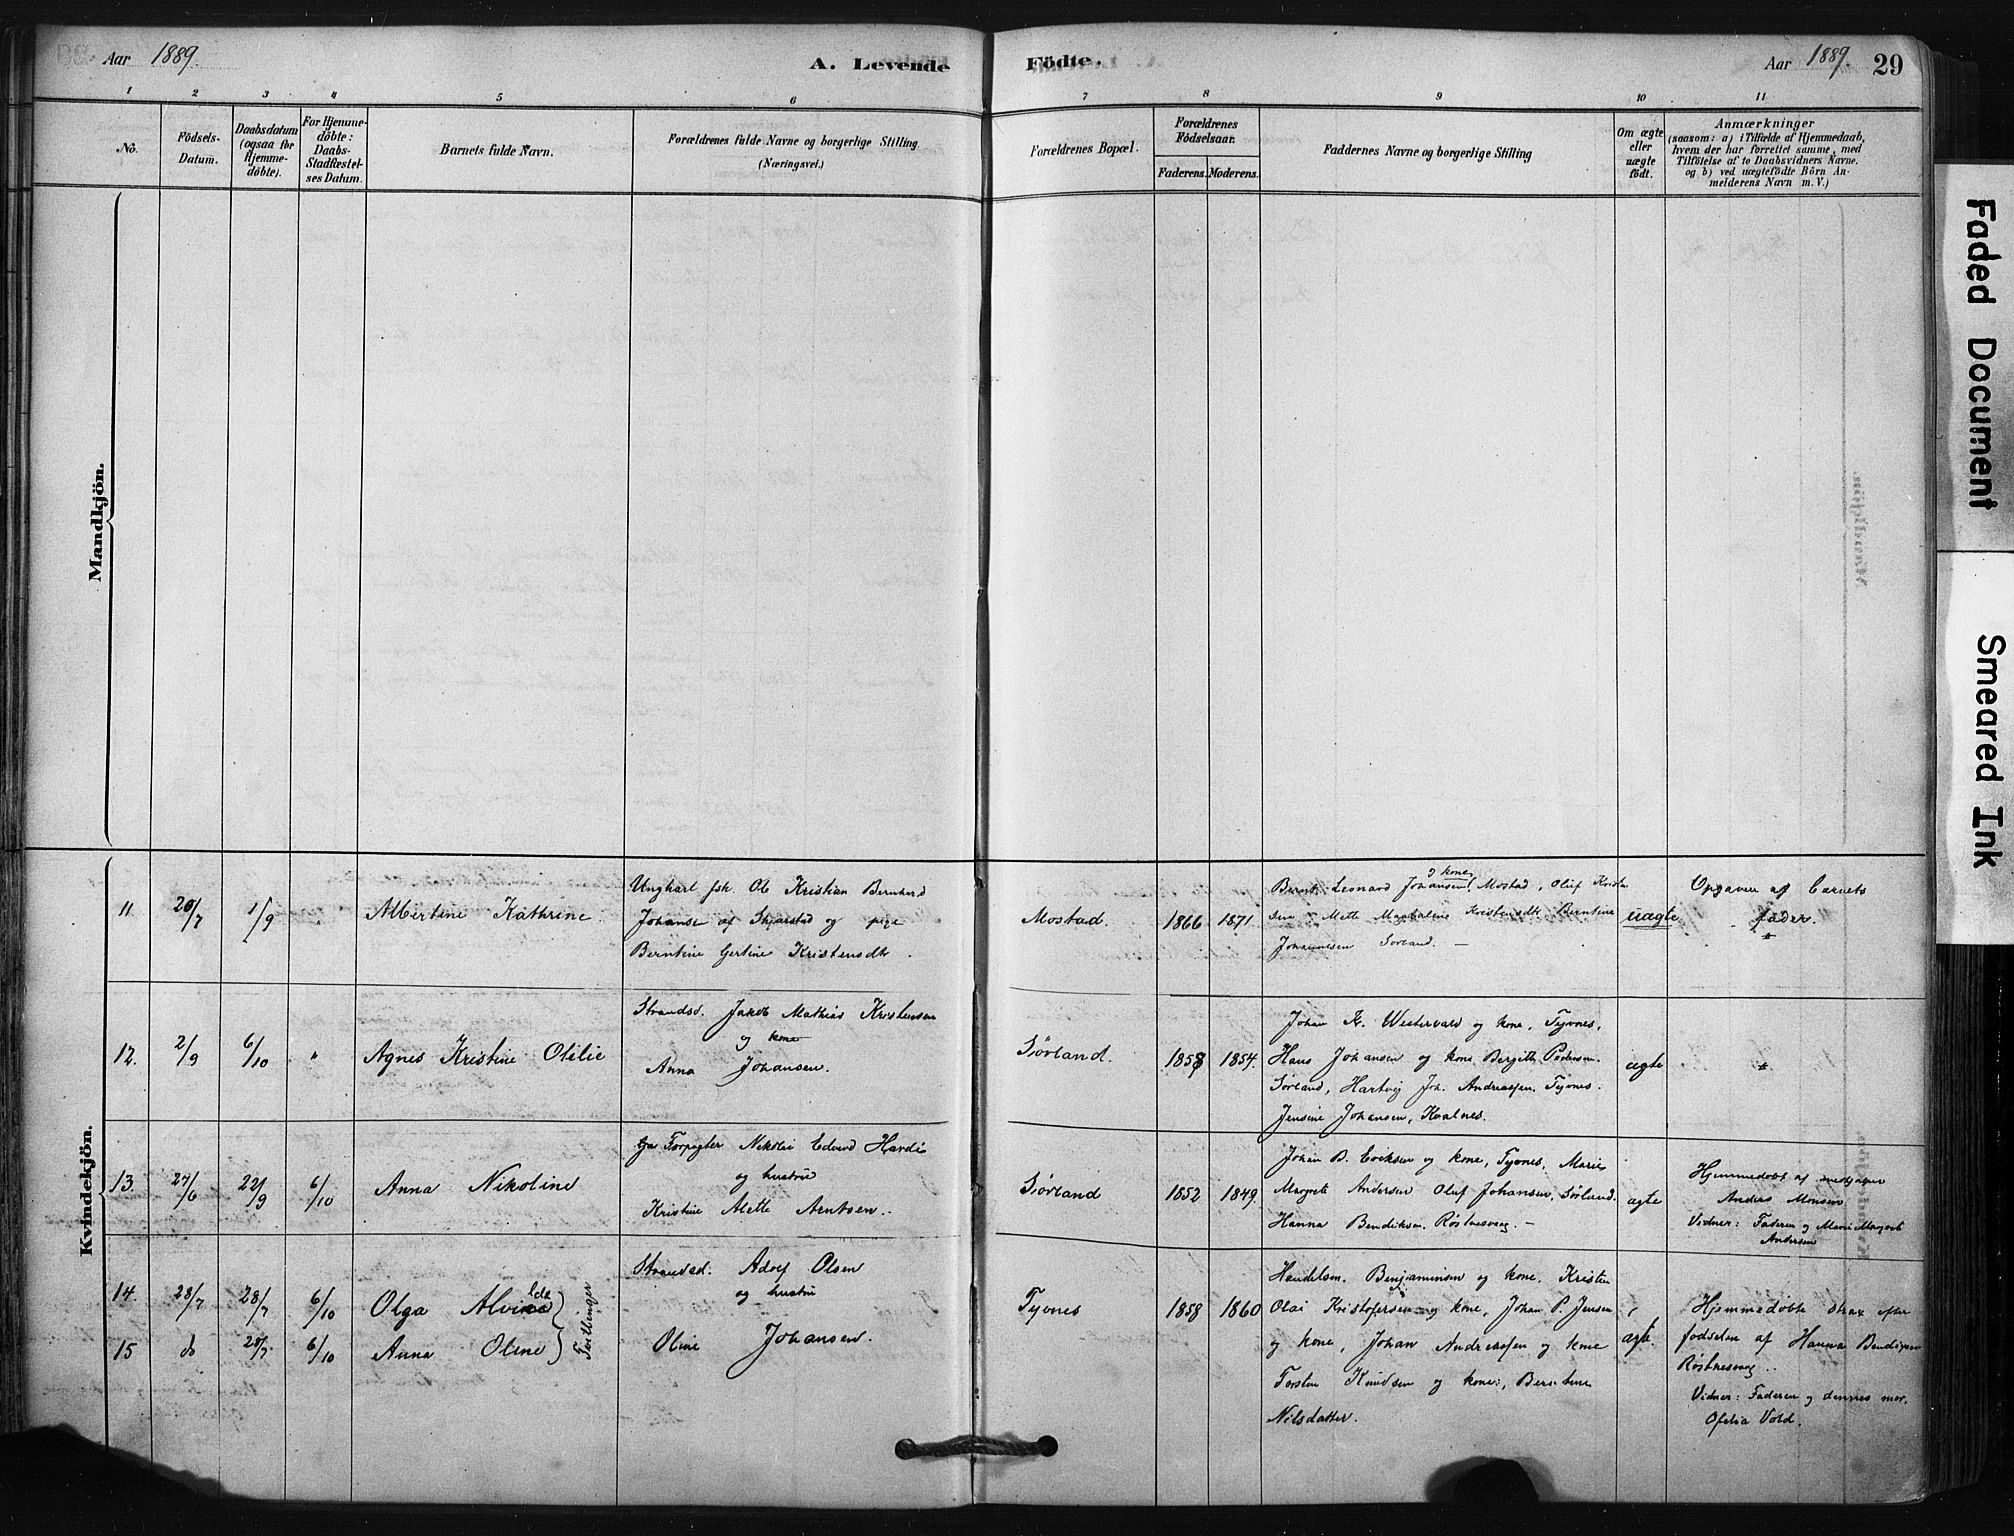 Aar 1889.
A. Levende Födte.
Aar 1889. 29
1 2 3 4 5 6 7 8 9 10 11
No.
Födsels-
Datum.
Daabsdatum
(ogsaa for
Hjemme-
döbte).
For Hjemme-
döbte:
Daabs-
Stadfæstel-
ses Datum.
Barnets fulde Navn.
Forældrenes fulde Navne og borgerlige Stilling
(Næringsvei.)
Forældrenes Bopæl.
Forældrenes
Födselsaar.
Faderens. Moderens.
Faddernes Navne og borgerlige Stilling
Om ægte
eller
uægte
födt.
Anmærkninger
(saasom: a) i Tilfælde af Hjemmedaab,
hvem der har forrettet samme, med
Tilföielse af to Daabsvidners Navne.
og b) ved uægtefödte Börn An-
melderens Navn m. V.)
Mandkjön.
Kvindekjön.
11 20/7 1/9 " Albertine Kathrine.
Ungkarl fsk. Ole Kristian Bernhard
Johansen af Skjarstad og pige
Berntine Gertine Kristensdtr.
Mostad. 1866 1871
og kone
Bernt Leonard Johansen, Mostad, Oluf
Mette Magdalene Kristensdtr. Berntine
Johannesen Sørland. —
uægte
Opgaven af barnets
fader.
12. 2/9 6/10 " Agnes Kristine Otilie
Strandsd. Jakob Mathias Kristensen
og kone
Anna Johansen.
Sørland. 1858 1854.
Johan K. Westervald og kone, Tyvnes,
Hans Johansen og kone Bergith Pedersen
Sørland, Hartvig Joh. Andreassen Tyvnes.
Jensine Johansen, Kvalnes.
ægte "
13. 27/6 22/9 6/10 Anna Nikoline
Forpagter Nikolai Edvard Hardi
og hustru
Kristine Alette Arntsen.
Sørland 1852 1849.
Johan B. Eriksen og kone, Tyvnes, Marie
Margrete Andersen Oluf Johansen, Sørland.
Hanna Bendiksen Røstnesvaag. —
ægte
Hjemmedøbt af
Anders Monsen
Vidner: Faderen og Marie Margrete
Andersen
14 28/7 28/7 6/10 Olga Alvilda
15 do 28/7 6/10 Anna Oline
Tvillinger
Strandsd. Adolf Olsen
og hustru
Oline Johansen.
Tyvnes 1858 1860
Handelsm. Benjaminsen og kone, Kristen
Olai Kristofersen og kone, Johan P. Jensen
og kone, Johan Andreassen og kone
Torsten Knudsen og kone, Berntine
Nilsdatter.
ægte.
Hjemmedøbte strax efter
fødselen af Hanna Bendixen
Røstnesvaag.
Vidner: Faderen og dennes mor.
Ofelia Vold.
Faded Document
Smeared Ink